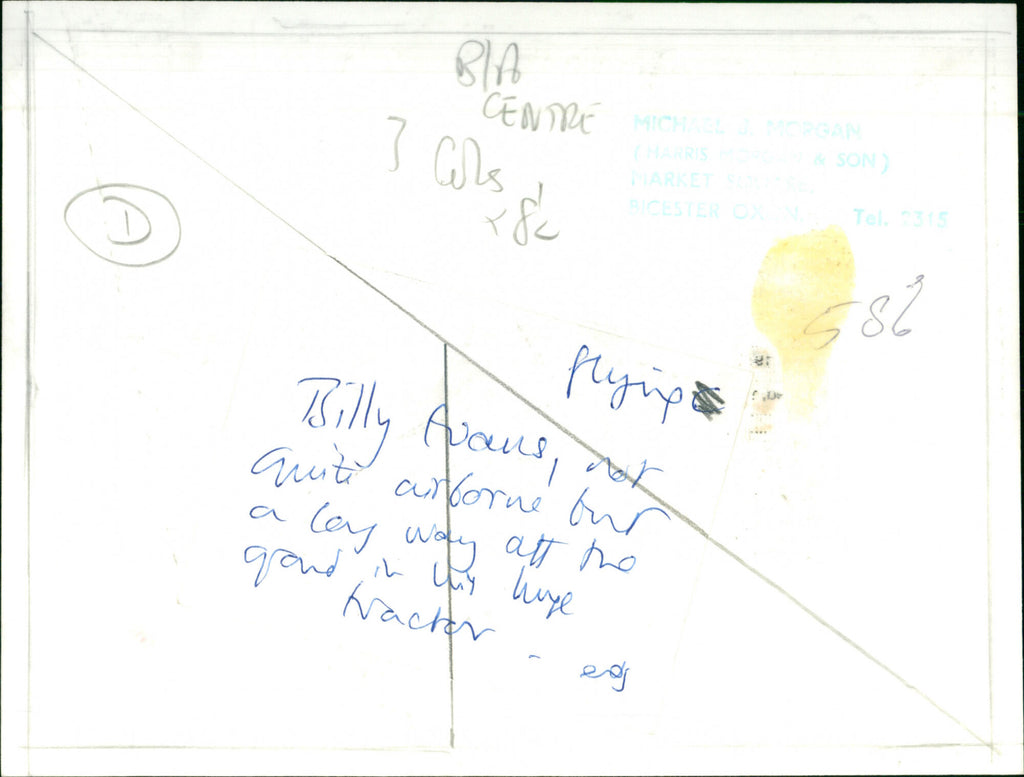 B/A
CENTRE
3 Cols
x 8½
D
MICHAEL J. MORGAN
(HARRIS MORGAN & SON)
MARKET SQUARE,
BICESTER OXON. Tel. 2315
586
flying
Billy Evans, not
quite airborne but
a long way off the
ground in his huge
tractor